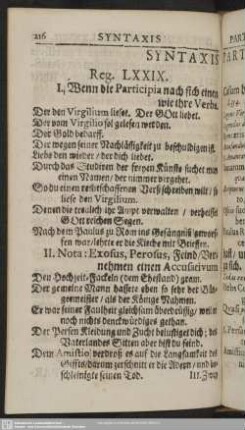 216 SYNTAXIS
SYNTAXIS
Reg. LXXIX.
I., Wenn die Participia nach sich einen
wie ihre Verba.
Der den Virgilium lieset. Der GOtt liebet.
Der vom Virgilio sol gelesen werden.
Der Gold bedarff.
Der wegen seiner Nachlässigkeit zu beschuldigen ist.
Liebe den wieder / der dich liebet.
Durch das Studiren der freyen Künste suchet man
einen Namen / der nimmer vergehet.
So du einen rechtschaffenen Verß schreiben wilt / so
liese den Virgilium.
Denen die treulich ihr Ampt verwalten / verheisset
GOtt reichen Segen.
Nach dem Paulus zu Rom ins Gefängniß geworf-
fen war / lehrte er die Kirche mit Brieffen.
II. Nota: Exosus, Perosus, Feind / Ver-
nehmen einen Accusativum
Den Hochzeit-Fackeln (dem Ehestand) gram.
Der gemeine Mann hassete eben so sehr der Bür-
germeister / als der Könige Nahmen.
Er war seiner Faulheit gleichsam überdrüssig / weil
noch nichts denckwürdiges gethan.
Der Persen Kleidung und Zucht belustiget dich; des
Vaterlandes Sitten aber bist du feind.
Dem Amistio verdroß es auf die Langsamkeit des
Giffts / darum zerschnitt er die Adern / und
schleinigte seinen Tod. III. Zwey